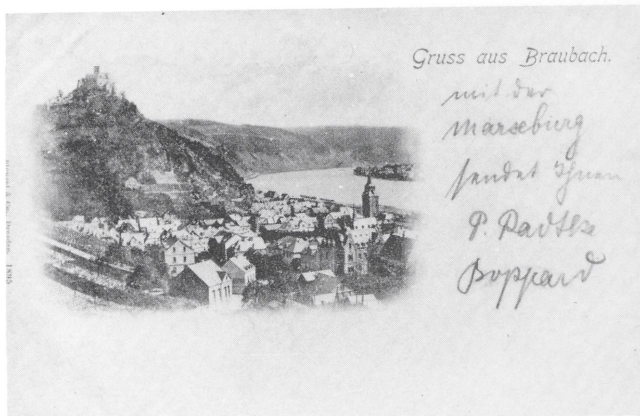 Gruss aus Braubach.
mit der
Marxeburg
sendet Ihnen
P. Radtke
Boppard
& Co., Dresden. 1895